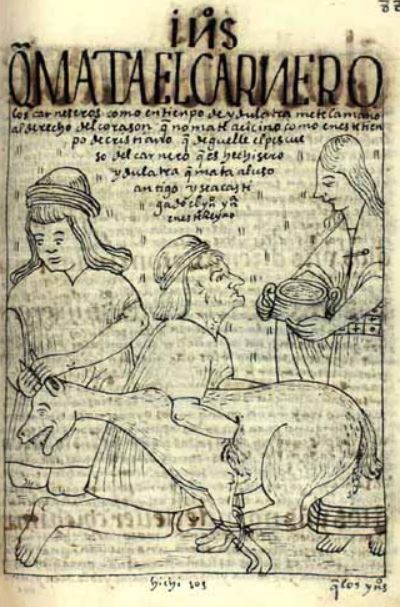 in̄s
Q̄MATAELCARNERO
los carneseros como en tienpo de ydulatra mete la mano
al derecho del corason q̄ no mate acicino como en este tien
po de cristiano q̄ deguelle el pescue
so del carnero q̄ es hechisero
ydulatra q̄ mata al uso
antigo y sea casti
gado el yn̄
en este rreyno
hichi sos
q̄ los yn̄s